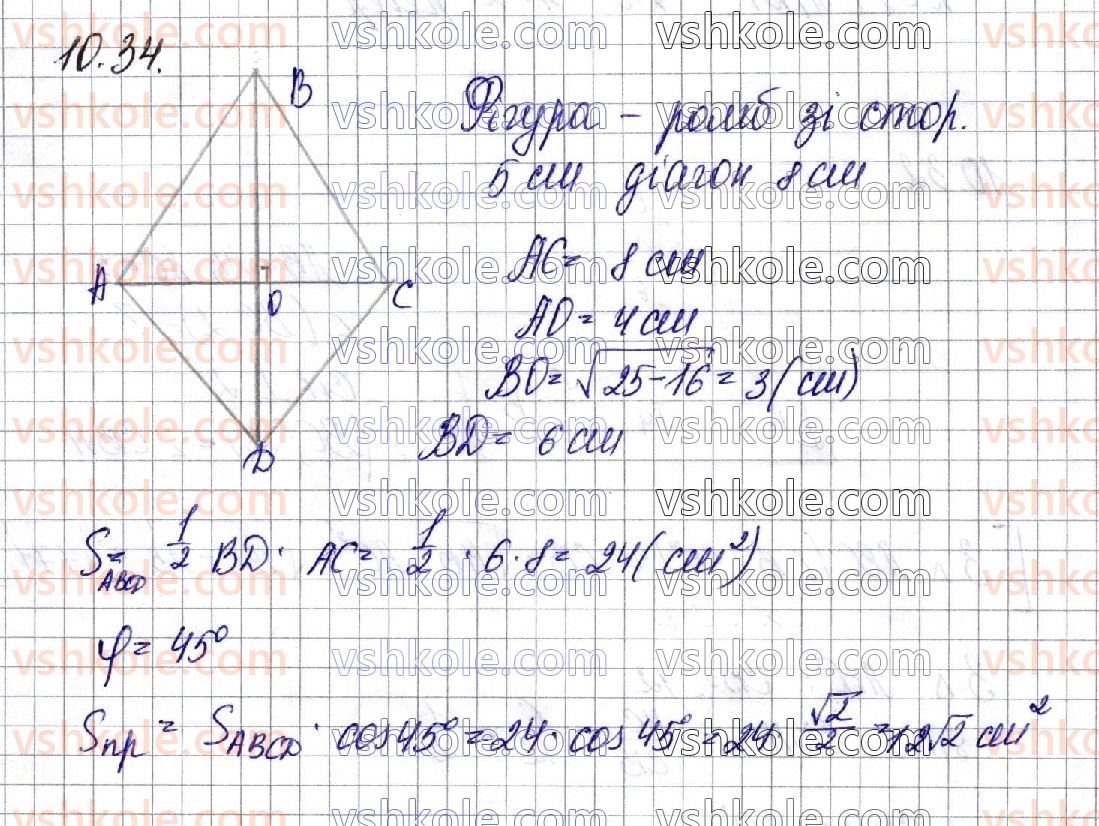 10.34.
B
Фігура – ромб зі стор.
5 см діагон 8 см
A
O
C
D
AC = 8 см
AO = 4 см
BO = √25-16 = 3 (см)
BD = 6 см
S ABCD = 1/2 BD · AC = 1/2 · 6 · 8 = 24 (см²)
φ = 45°
Sпр = SABCD · cos 45° = 24 · cos 45° = 24 √2/2 = 12√2 см²
vshkole.com